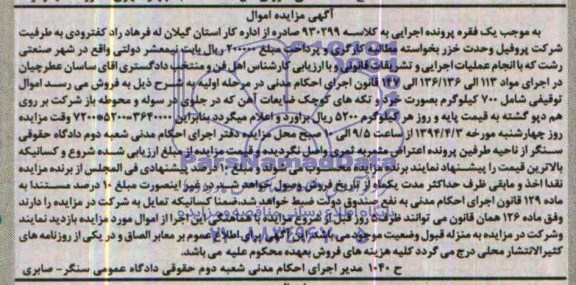 آگهی مزایده اموال
به موجب یک فقره پرونده اجرایی به کلاسه ۹۳۰۲۹۹ صادره از اداره کار استان گیلان له فرهاد راد کفترودی به طرفیت
شرکت پروفیل وحدت خزر بخواسته مطالبه کارگری و پرداخت مبلغ ۲۰۰۰۰۰ ریال بابت نیمعشر دولتی واقع در شهر صنعتی
رشت که با انجام عملیات اجرایی و تشریفات قانونی و با ارزیابی کارشناس اهل فن و منتخب دادگستری اقای ساسان عطرچیان
در اجرای مواد 113 الی ۱۳۶/۱۳۶ الی ۱۴۷ قانون اجرای احکام مدنی در مرحله اولیه به شرح ذیل به فروش می رسد اموال
توقیفی شامل ۷۰۰ کیلوگرم بصورت خرد و تکه های کوچک ضایعات آهن که در جلوی در سوله و محوطه باز شرکت بر روی
هم دپو گشته به قیمت پایه و روز هر کیلوگرم ۵۲۰۰ ریال براورد و اعلام میگردد بنابراین ۳۶۴۰۰۰۰=۵۲۰۰×۷۲۰۰ وقت مزایده
روز چهارشنبه مورخه ۱۳۹۴/۴/۳ از ساعت ۹/۵ الی ۱۰ صبح محل مزایده دفتر اجرای احکام مدنی شعبه دوم دادگاه حقوقی
سنگر از ناحیه طرفین پرونده اعتراض مثمر به ثمری واصل نگردیده و قیمت مزایده از مبلغ ارزیابی شده شروع و کسانیکه
بالاترین قیمت را پیشنهاد نمایند برنده مزایده محسوب می شوند و مبلغ ۱۰ درصد پیشنهادی فی المجلس از برنده مزایده
نقدا اخذ و مابقی ظرف حداکثر مدت یکماه از تاریخ فروش وصول خواهد شد در غیر اینصورت مبلغ ۱۰ درصد مستندا به
ماده ۱۲۹ قانون اجرای احکام مدنی به نفع صندوق دولت ضبط خواهد شد،ضمنا کسانیکه تمایل به شرکت در مزایده را دارند
وفق ماده ۱۲۶ همان قانون می توانند ظرف روز قبل از شروع مزایده با هماهنگی این اجرا از اموال مورد مزایده بازدید نمایند
وشرکت در مزایده به منزله قبول وضعیت موجود می باشد این آگهی برای اطلاع عموم بر معابر الصاق و در یکی از روزنامه های
کثیرالانتشار محلی درج می گردد کلیه هزینه های فروش بعهده محکوم علیه می باشد.
ح ۱۰۴۰ مدیر اجرای احکام مدنی شعبه دوم حقوقی دادگاه عمومی سنگر- صابری
ParsNamadData